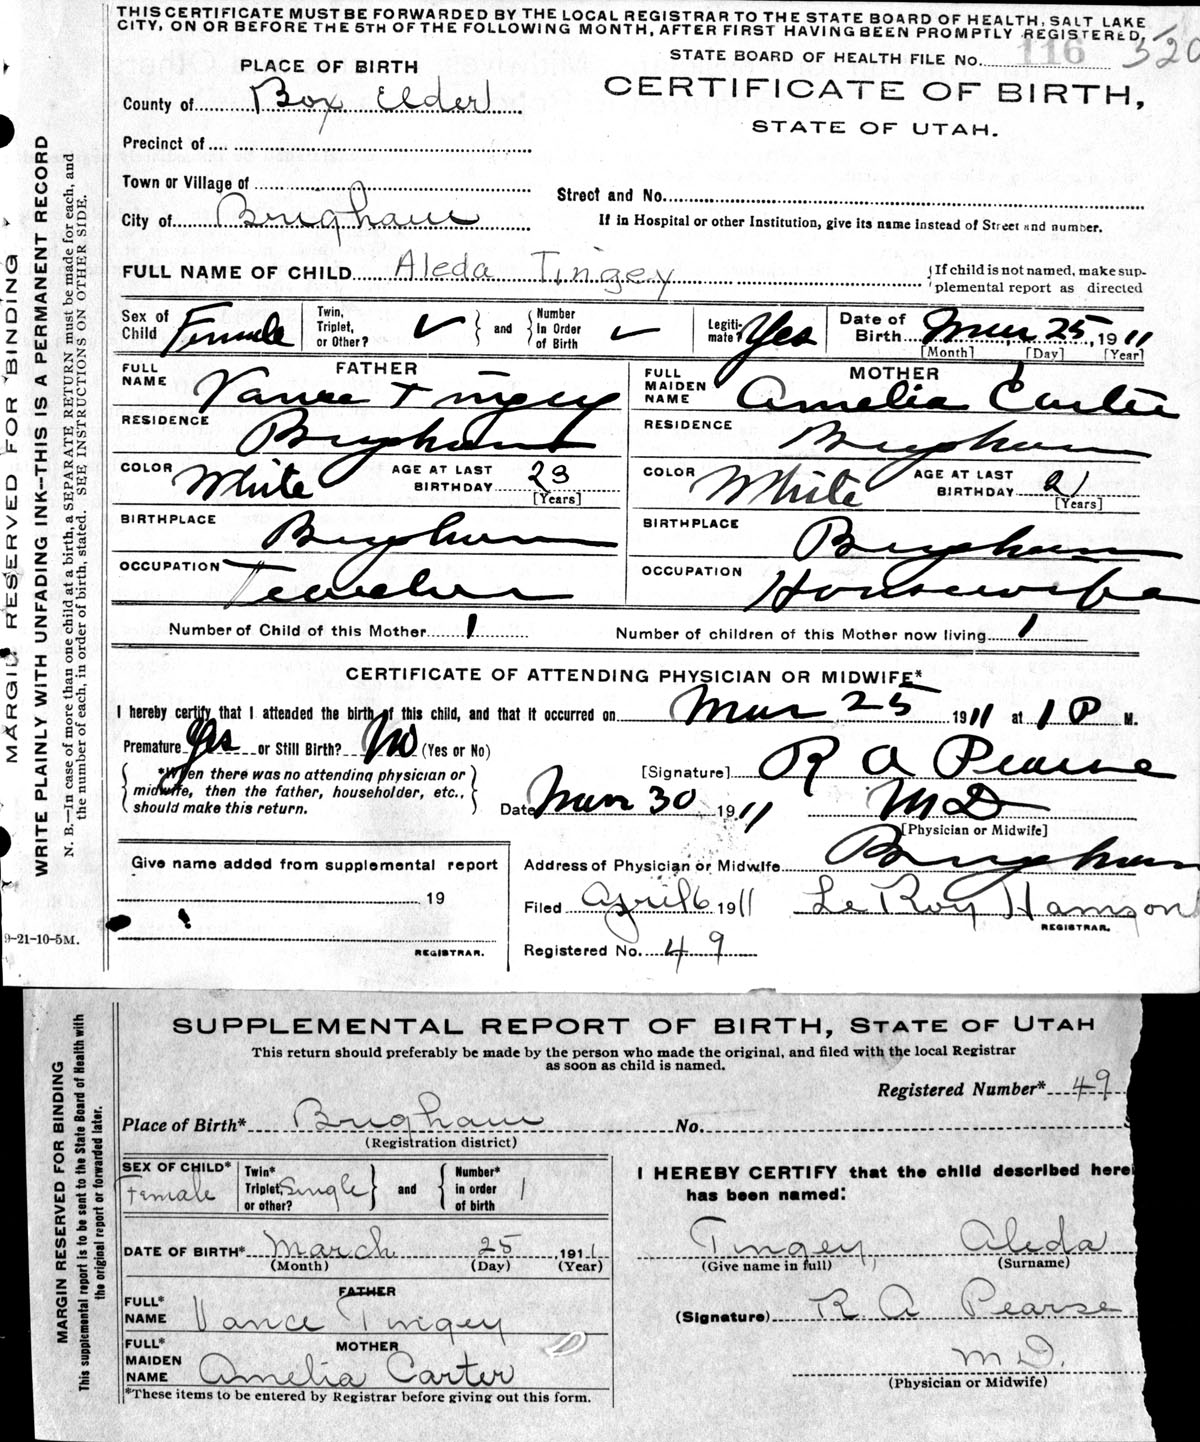 THIS CERTIFICATE MUST BE FORWARDED BY THE LOCAL REGISTRAR TO THE STATE BOARD OF HEALTH, SALT LAKE
CITY, ON OR BEFORE THE 5TH OF THE FOLLOWING MONTH, AFTER FIRST HAVING BEEN PROMPTLY REGISTERED.
STATE BOARD OF HEALTH FILE No. 116 520
PLACE OF BIRTH
CERTIFICATE OF BIRTH,
STATE OF UTAH.
County of Box Elder
Precinct of
Town or Village of
Street and No.
City of Brigham
If in Hospital or other Institution, give its name instead of Street and number.
FULL NAME OF CHILD Aleda Tingey
If child is not named, make sup-
plemental report as directed
Sex of Child Female
Twin, Triplet, or Other? ✓ and Number In Order of Birth ✓
Legiti-mate? Yes
Date of Birth Mar 25, 1911
[Month] [Day] [Year]
FATHER
FULL NAME Vance Tingey
RESIDENCE Brigham
COLOR White AGE AT LAST BIRTHDAY 23 [Years]
BIRTHPLACE Brigham
OCCUPATION Teacher
MOTHER
FULL MAIDEN NAME Amelia Carter
RESIDENCE Brigham
COLOR White AGE AT LAST BIRTHDAY 21 [Years]
BIRTHPLACE Brigham
OCCUPATION Housewife
Number of Child of this Mother 1 Number of children of this Mother now living 1
CERTIFICATE OF ATTENDING PHYSICIAN OR MIDWIFE*
I hereby certify that I attended the birth of this child, and that it occurred on Mar 25 1911 at 1 P M.
Premature Yes or Still Birth? No (Yes or No)
*When there was no attending physician or
midwife, then the father, householder, etc.,
should make this return.
[Signature] R A Pearse
Date Mar 30 1911 M D
[Physician or Midwife]
Give name added from supplemental report
19
REGISTRAR.
Address of Physician or Midwife Brigham
Filed April 6 1911 Le Roy Hamson
REGISTRAR.
Registered No. 49
MARGIN RESERVED FOR BINDING
WRITE PLAINLY WITH UNFADING INK—THIS IS A PERMANENT RECORD
N. B.—In case of more than one child at a birth, a SEPARATE RETURN must be made for each, and
the number of each, in order of birth, stated. SEE INSTRUCTIONS ON OTHER SIDE.
9-21-10-5M.
SUPPLEMENTAL REPORT OF BIRTH, STATE OF UTAH
This return should preferably be made by the person who made the original, and filed with the local Registrar
as soon as child is named.
Registered Number* 49
Place of Birth* Brigham No. S
(Registration district)
SEX OF CHILD* Female
Twin* Triplet, or other? Single and Number* in order of birth 1
DATE OF BIRTH* March 25, 1911
(Month) (Day) (Year)
FATHER
FULL* NAME Vance Tingey
MOTHER
FULL* MAIDEN NAME Amelia Carter
*These items to be entered by Registrar before giving out this form.
I HEREBY CERTIFY that the child described herei
has been named:
Tingey, Aleda
(Give name in full) (Surname)
(Signature) R. A Pearse
M D.
(Physician or Midwife)
MARGIN RESERVED FOR BINDING
This supplemental report is to be sent to the State Board of Health with
the original report or forwarded later.